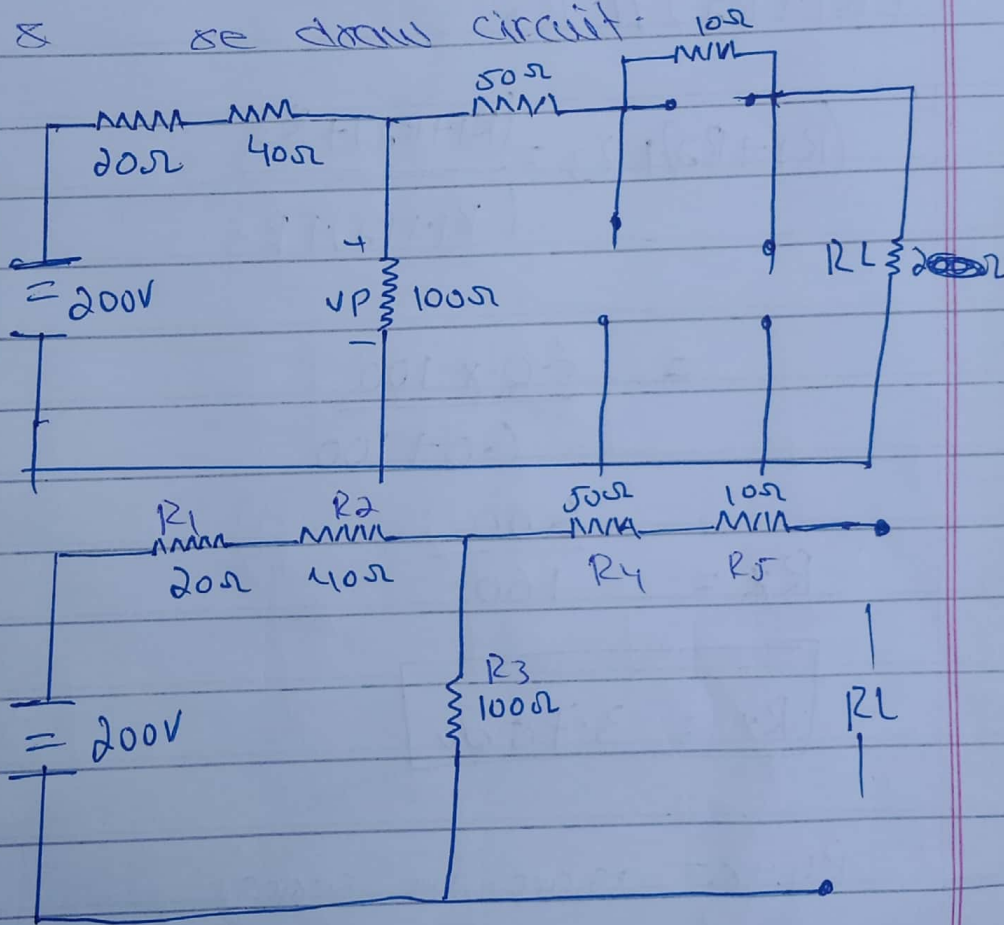 & se draw circuit.
10Ω
50Ω
20Ω 40Ω
+
= 200V VP 100Ω RL
−
R1 R2 50Ω 10Ω
20Ω 40Ω R4 R5
R3
100Ω
= 200V RL